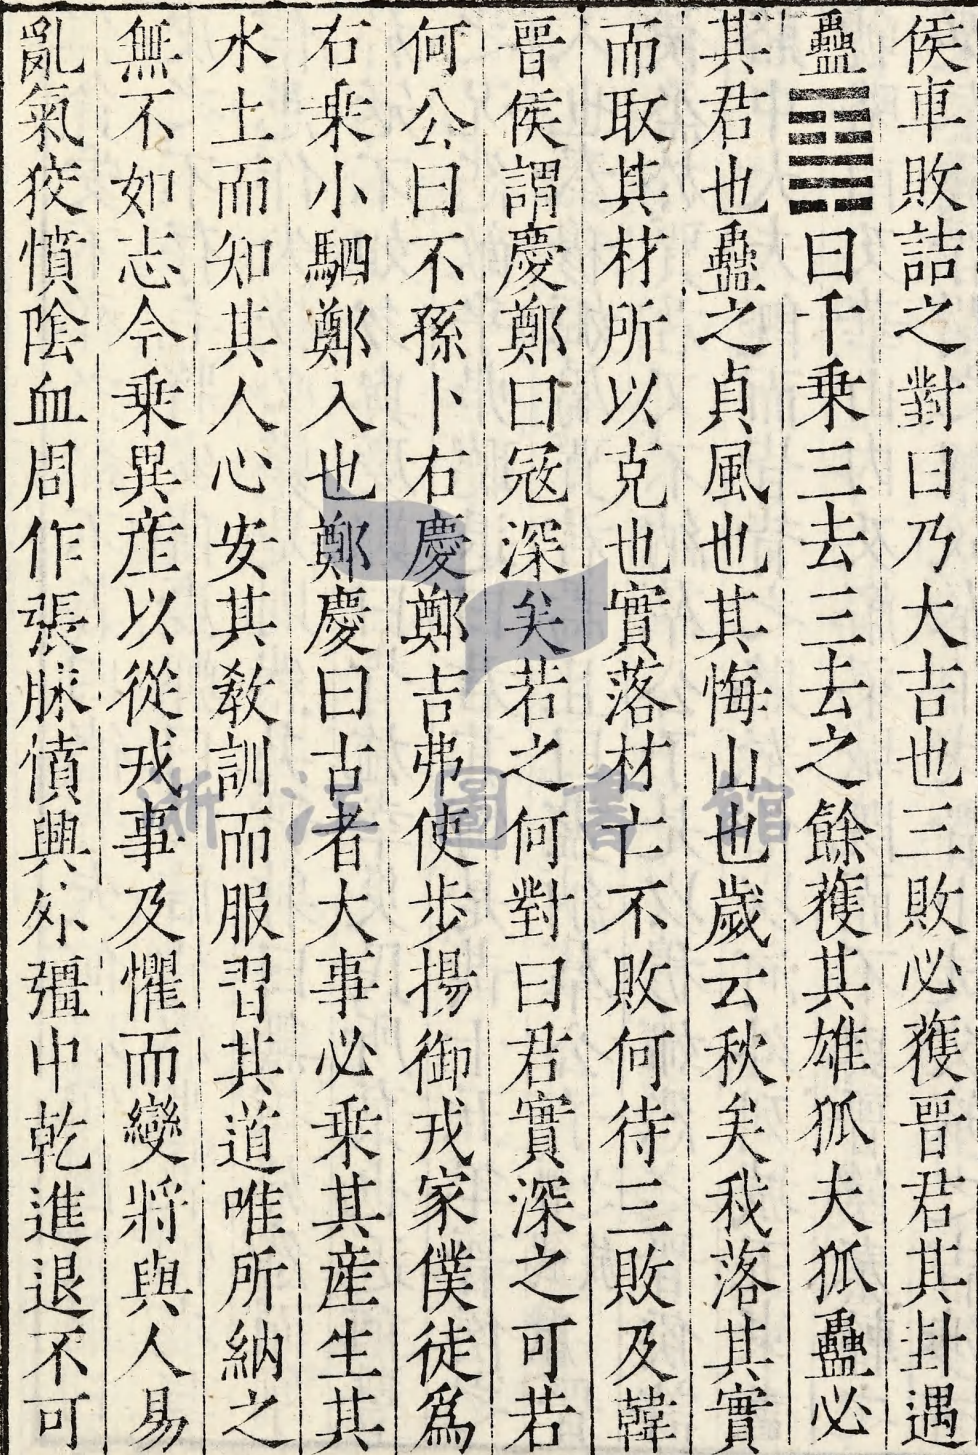 侯車敗詰之對曰乃大吉也三敗必獲晉君其卦遇
蠱䷑曰千乗三去三去之餘獲其雄狐夫狐蠱必
其君也蠱之貞風也其悔山也歲云秋矣我落其實
而取其材所以克也實落材亡不敗何待三敗及韓
晉侯謂慶鄭曰冦深矣若之何對曰君實深之可若
何公曰不孫卜右慶鄭吉弗使步揚御戎家僕徒爲
右乗小駟鄭入也鄭慶曰古者大事必乗其産生其
水土而知其人心安其敎訓而服習其道唯所納之
無不如志今乗異産以從戎事及懼而變將與人易
亂氣狡憤隂血周作張脉憤興外彊中乾進退不可
浙江圖書館